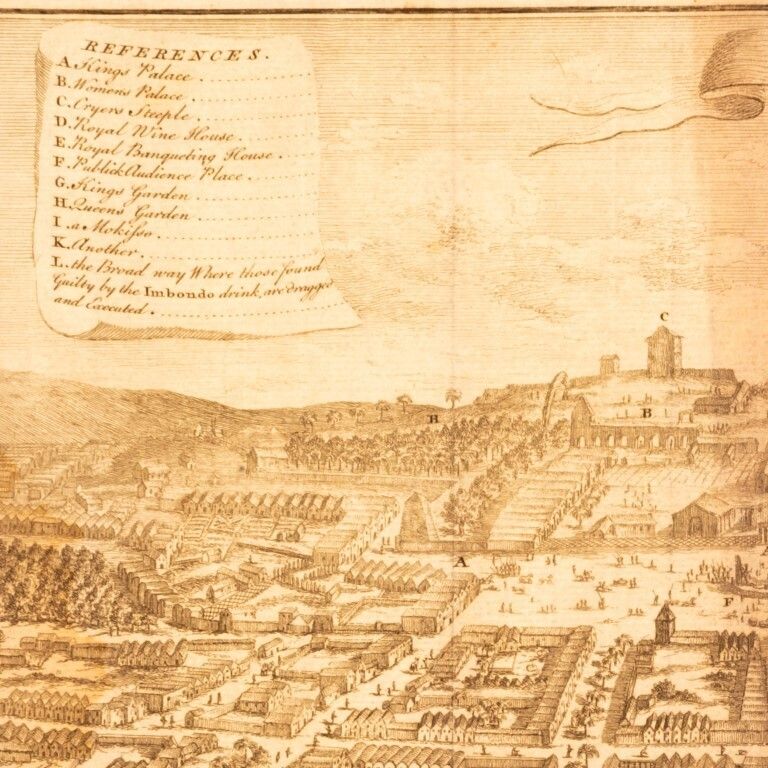 REFERENCES.
A. Kings Palace
B. Womens Palace
C. Cryers Steeple
D. Royal Wine House.
E. Royal Banqueting House.
F. Publick Audience Place.
G. Kings Garden
H. Queens Garden
I. a Mokisso.
K. Another.
L. the Broad way Where those found
Guilty by the Imbondo drink, are dragged
and Executed.
C
H
B
A
F